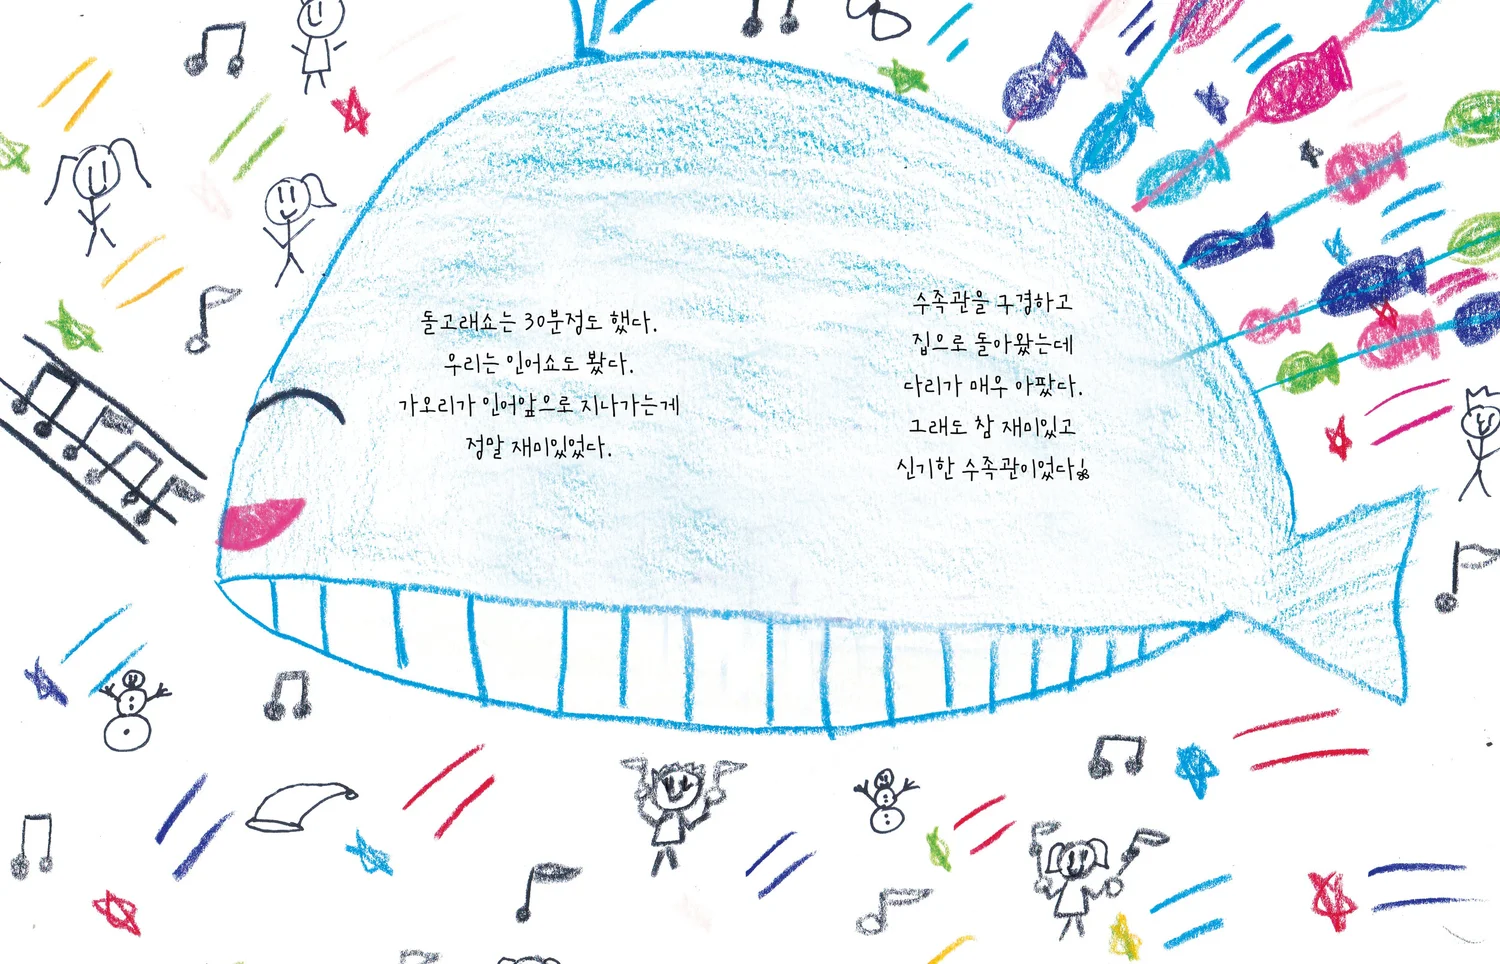 돌고래쇼는 30분정도 했다.
우리는 인어쇼도 봤다.
가오리가 인어앞으로 지나가는게
정말 재미있었다.
수족관을 구경하고
집으로 돌아왔는데
다리가 매우 아팠다.
그래도 참 재미있고
신기한 수족관이었다!